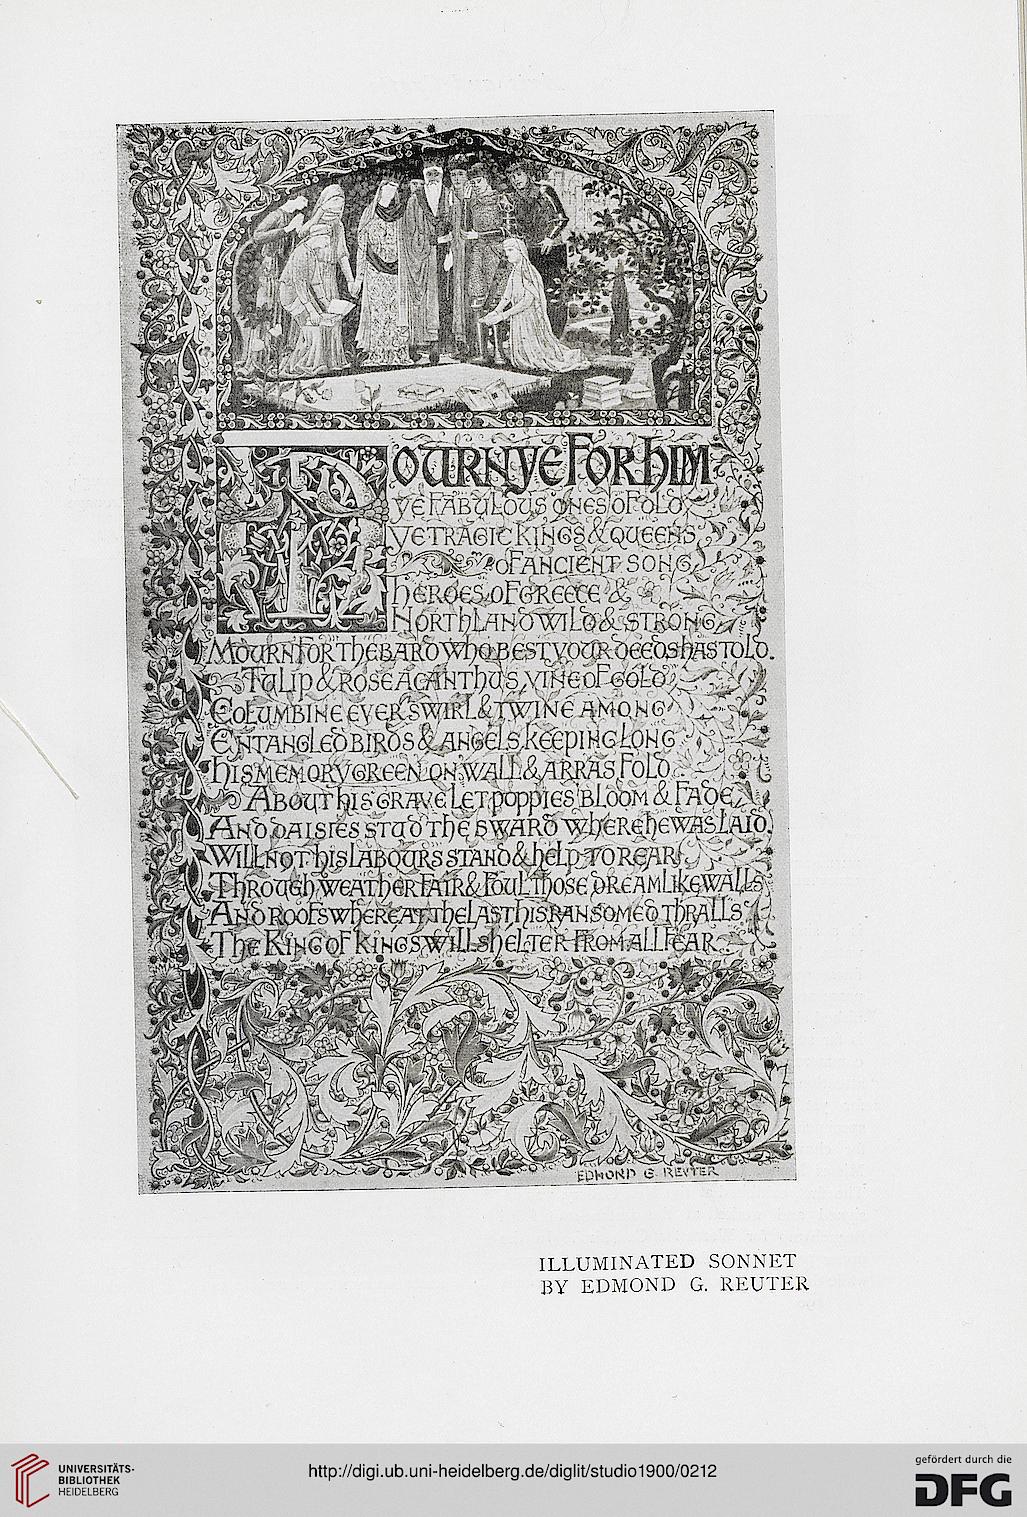 MOURN YE FOR HIM
YE FABULOUS ONES OF OLD
YE TRAGIC KINGS & QUEENS
OF ANCIENT SONG
HEROES OF GREECE &
NORTHLAND WILD & STRONG
MOURN FOR THE BARD WHO BEST YOUR DEEDS HAS TOLD.
TULIP & ROSE ACANTHUS, VINE OF GOLD
COLUMBINE EVER SWIRL & TWINE AMONG
ENTANGLED BIRDS & ANGELS, KEEPING LONG
HIS MEMORY GREEN ON WALL & ARRAS FOLD
ABOUT HIS GRAVE LET POPPIES BLOOM & FADE,
AND DAISIES STUD THE SWARD WHERE HE WAS LAID.
WILL NOT HIS LABOURS STAND & HELP TO REAR
THROUGH WEATHER FAIR & FOUL THOSE DREAMLIKE WALLS
AND ROOFS WHEREAT THE LAST HIS RANSOMED THRALLS
THE KING OF KINGS WILL SHELTER FROM ALL FEAR.
EDMOND G. REUTER
ILLUMINATED SONNET
BY EDMOND G. REUTER
UNIVERSITÄTS-
BIBLIOTHEK
HEIDELBERG
http://digi.ub.uni-heidelberg.de/diglit/studio1900/0212
gefördert durch die
DFG